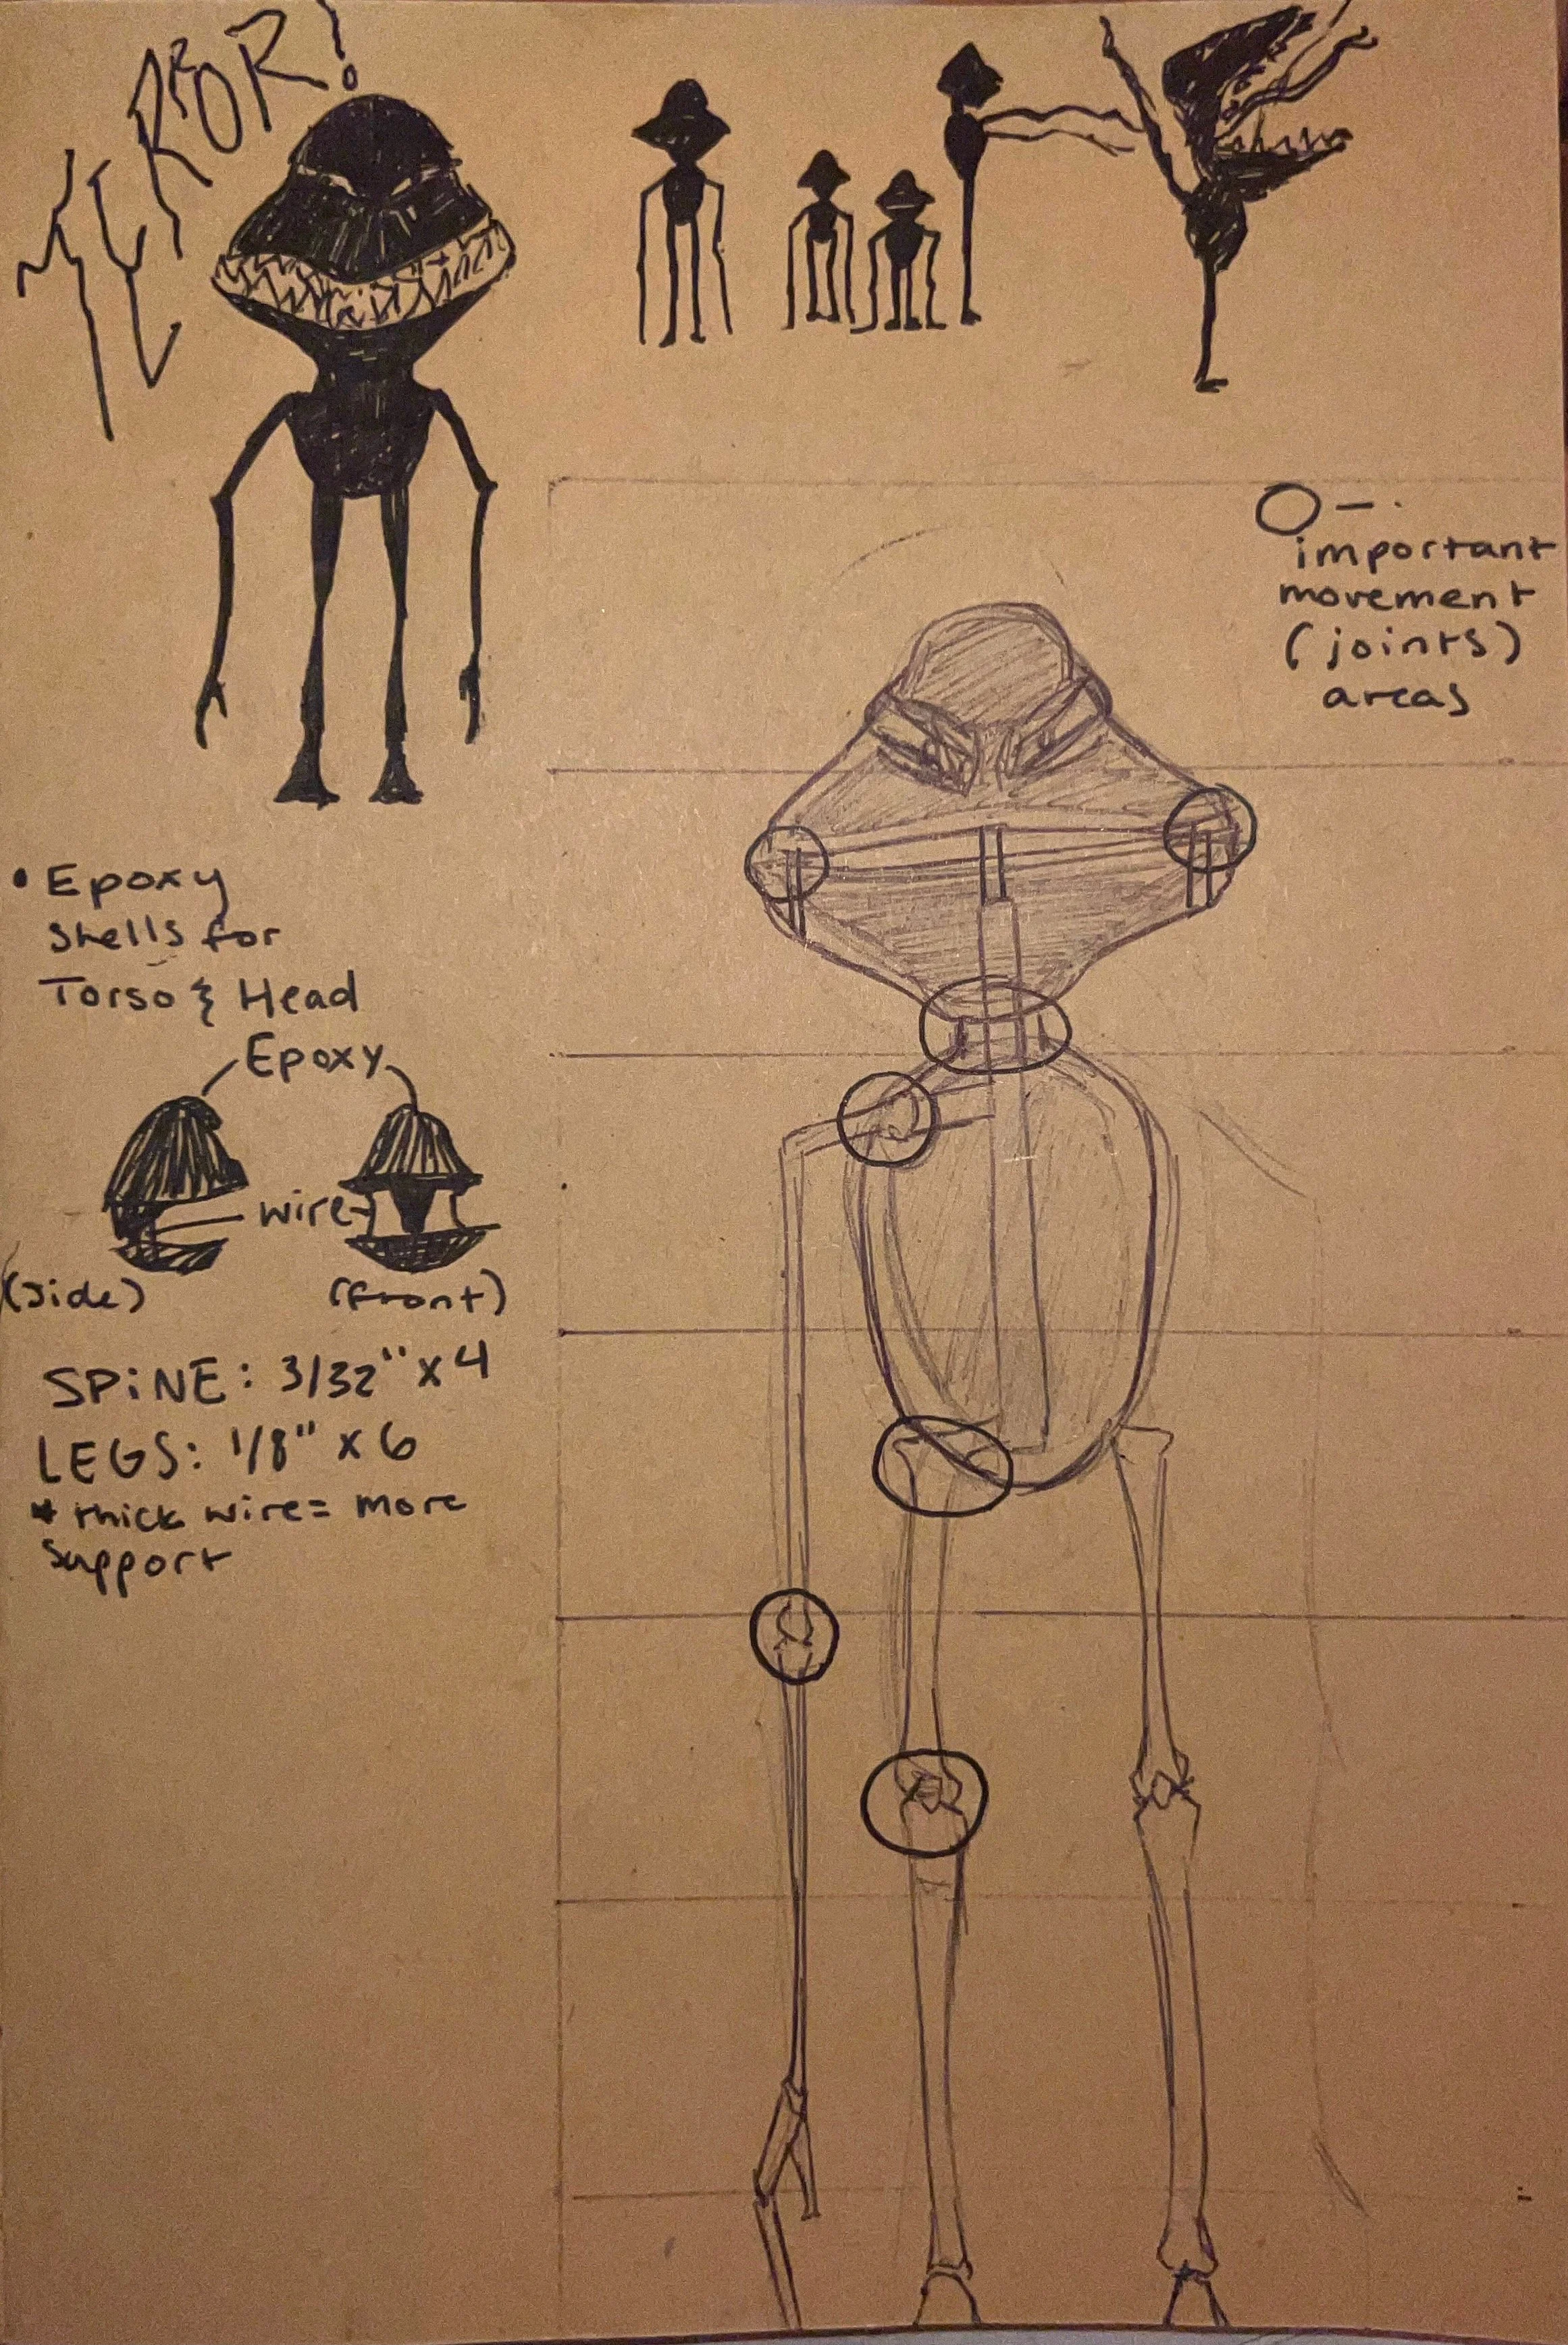 TERROR!
O - .
important
movement
(joints)
areas
• Epoxy
shells for
Torso & Head
Epoxy
wire
(side)
(front)
SPiNE: 3/32" x 4
LEGS: 1/8" x 6
* thick wire = more
support